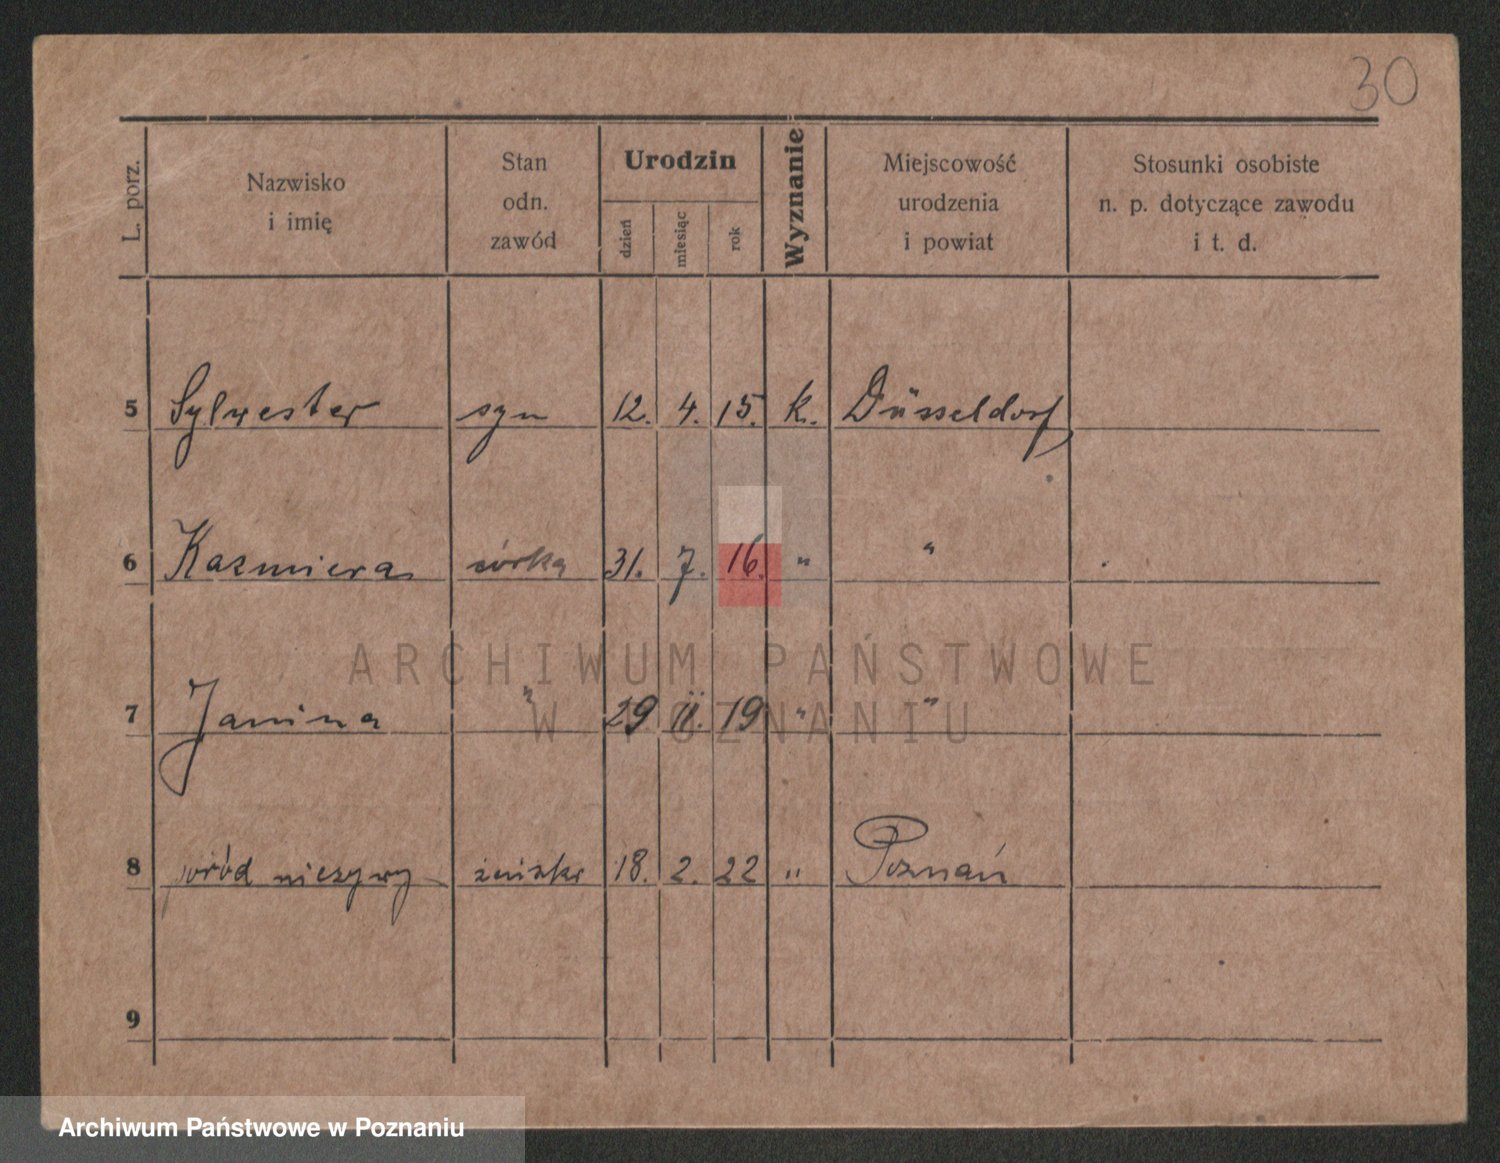 30
L. porz.
Nazwisko
i imię
Stan
odn.
zawód
Urodzin
dzień
miesiąc
rok
Wyznanie
Miejscowość
urodzenia
i powiat
Stosunki osobiste
n. p. dotyczące zawodu
i t. d.
5 Sylwester syn 12. 4. 15. k. Düsseldorf
6 Kazmiera córka 31. 7. 16. " "
7 Janina " 29 II. 19 " "
8 poród nieżywy 18. 2. 22 " Poznań
9
ARCHIWUM PAŃSTWOWE
W POZNANIU
Archiwum Państwowe w Poznaniu